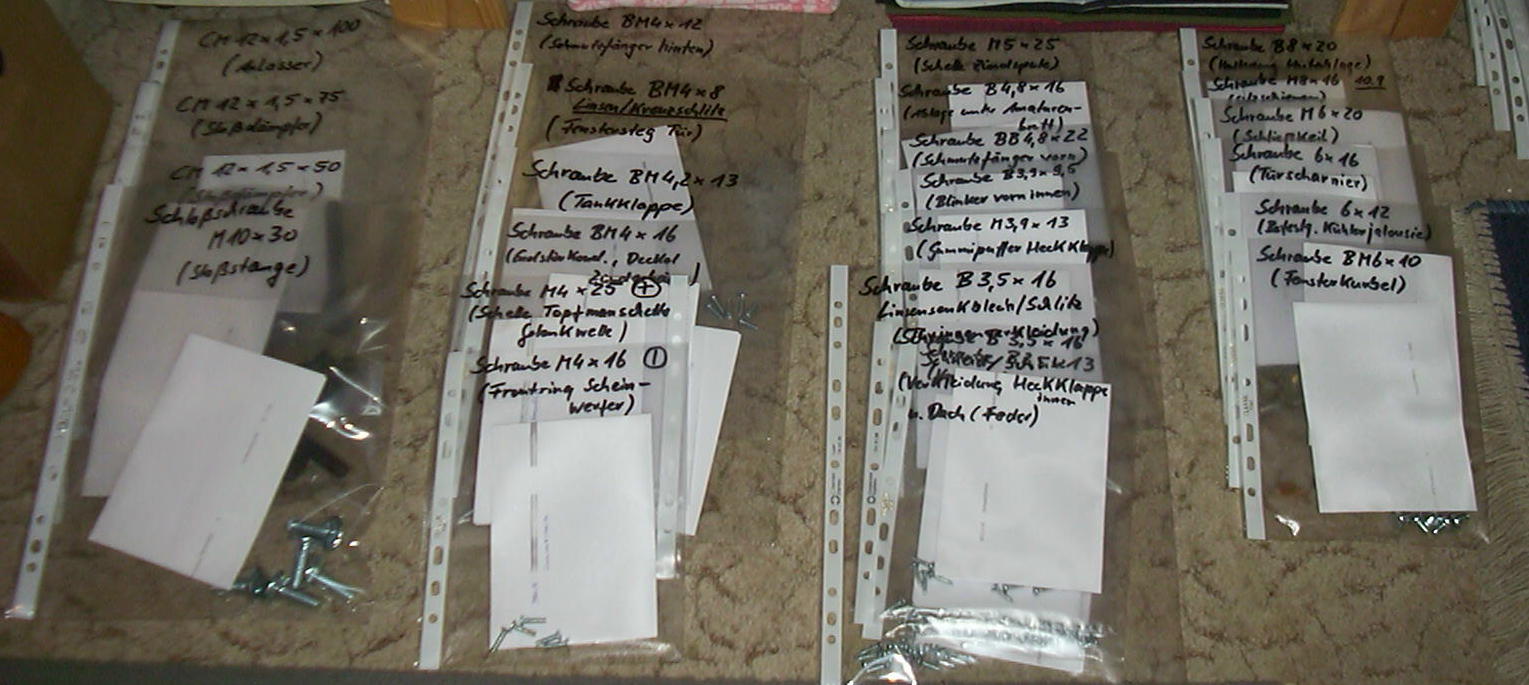 CM 12 x 1,5 x 100
(Anlasser)
CM 12 x 1,5 x 75
(Stoßdämpfer)
CM 12 x 1,5 x 50
(Stoßdämpfer)
Schloßschraube
M10 x 30
(Stoßstange)
Schraube BM4 x 12
(Schmutzfänger hinten)
Schraube BM4 x 8
Linsen/Kreuzschlitz
(Fenstersteg Tür)
Schraube BM4,2 x 13
(Tankklappe)
Schraube BM4 x 16
Deckel
Schraube M4 x 25 (+)
(Schelle Topfmanschette
Gelenkwelle)
Schraube M4 x 16 (|)
(Frontring Schein-
werfer)
Schraube M5 x 25
(Schelle Zündspule)
Schraube B4,8 x 16
(Ablage unter Amaturen-
brett)
Schraube BB4,8 x 22
(Schmutzfänger vorn)
Schraube B3,9 x 9,5
(Blinker vorn innen)
Schraube M3,9 x 13
(Gummipuffer Heckklappe)
Schraube B3,5 x 16
Linsensenkblech/Schlitz
B 3,5 x 16
(Verkleidung Heckklappe
innen
u. Dach (Feder)
Schraube B8 x 20
Schraube M8 x 16 10.9
(Sitzschienen)
Schraube M6 x 20
(Schließkeil)
Schraube 6 x 16
(Türscharnier)
Schraube 6 x 12
(Befestg. Kühlerjalousie)
Schraube BM6 x 10
(Fensterkurbel)